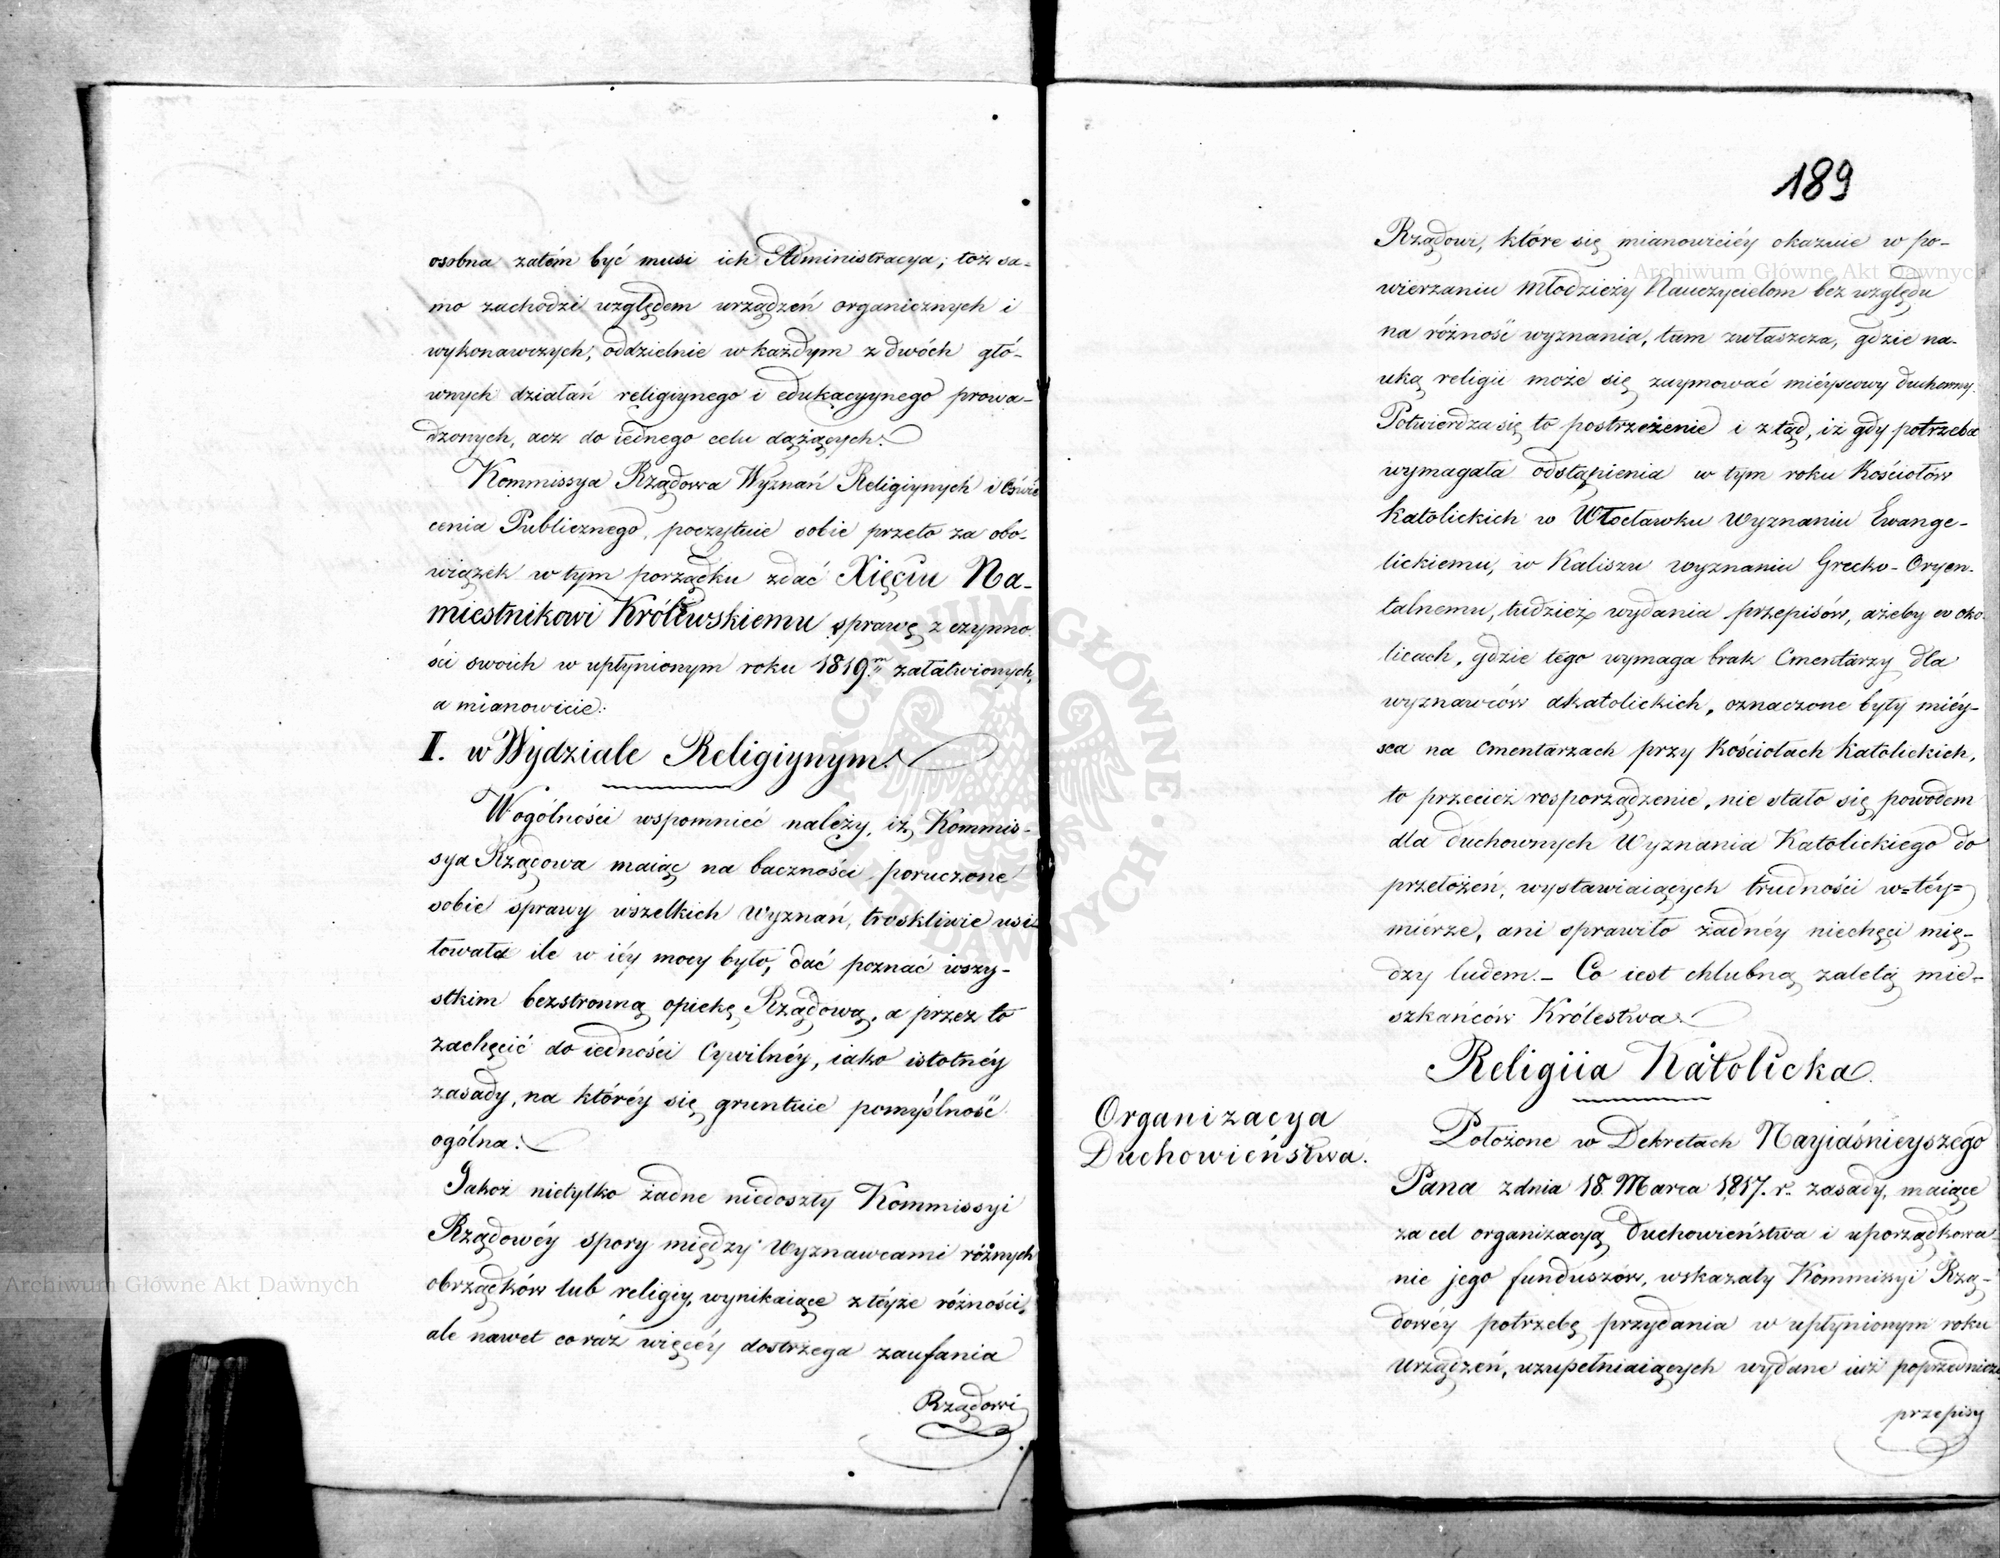 osobna zatém być musi ich Administracya; toż sa-
mo zachodzi względem urządzeń organicznych i
wykonawczych, oddzielnie w każdym z dwóch głó-
wnych działań religiynego i edukacyynego prowa-
dzonych, acz do iednego celu dążących.
Kommissya Rządowa Wyznań Religiynych i Oświe
cenia Publicznego, poczytuie sobie przeto za obo-
wiązek w tym porządku zdać Xięciu Na-
miestnikowi Królewskiemu sprawę z czynno
ści swoich w upłynionym roku 1819.m załatwionych,
a mianowicie:
I. w Wydziale Religiynym.
W ogólności wspomnieć należy, iż Kommis-
sya Rządowa maiąc na baczności poruczone
sobie sprawy wszelkich Wyznań, troskliwie usi-
łowała ile w iéy mocy było, dać poznać wszy-
stkim bezstronną opiekę Rządową, a przez to
zachęcić do iedności Cywilnéy, iako istotnéy
zasady, na któréy się gruntuie pomyślność
ogólna.
Jakoż nietylko żadne niedoszły Kommissyi
Rządowéy spory między Wyznawcami różnych
obrządków lub religiy, wynikaiące z téyże różności,
ale nawet co raz więcéy dostrzega zaufania
Rządowi
189
Rządowi, które się mianowiciéy okazuie w po-
wierzaniu Młodzieży Nauczycielom bez względu
na różność wyznania, tam zwłaszcza, gdzie na-
uką religii może się zaymować miéyscowy duchowny.
Potwierdza się to postrzeżenie i z tąd, iż gdy potrzeba
wymagała odstąpienia w tym roku Kościołów
Katolickich w Włocławku Wyznaniu Ewange-
lickiemu, w Kaliszu wyznaniu Grecko-Oryen-
talnemu, tudzież wydania przepisów, ażeby w oko-
licach, gdzie tego wymaga brak Cmentarzy dla
wyznawców akatolickich, oznaczone były miéy-
sca na Cmentarzach przy Kościołach Katolickich,
to przecież rosporządzenie, nie stało się powodem
dla duchownych Wyznania Katolickiego do
przełożeń, wystawiaiących trudności w=téy=
miérze, ani sprawiło żadnéy niechęci mię-
dzy ludem.- Co iest chlubną zaletą mie-
szkańców Królestwa.
Religiia Katolicka.
Organizacya
Duchowieństwa.
Położone w Dekretach Nayiaśnieyszego
Pana z dnia 18. Marca 1817. r. zasady, maiące
za cel organizacyą Duchowieństwa i uporządkowa-
nie jego funduszów, wskazały Kommissyi Rzą-
dowéy potrzebę przydania w upłynionym roku
Urządzeń, uzupełniaiących wydane iuż poprzedniczo
przepisy
Archiwum Główne Akt Dawnych
Archiwum Główne Akt Dawnych
ARCHIWUM GŁÓWNE AKT DAWNYCH